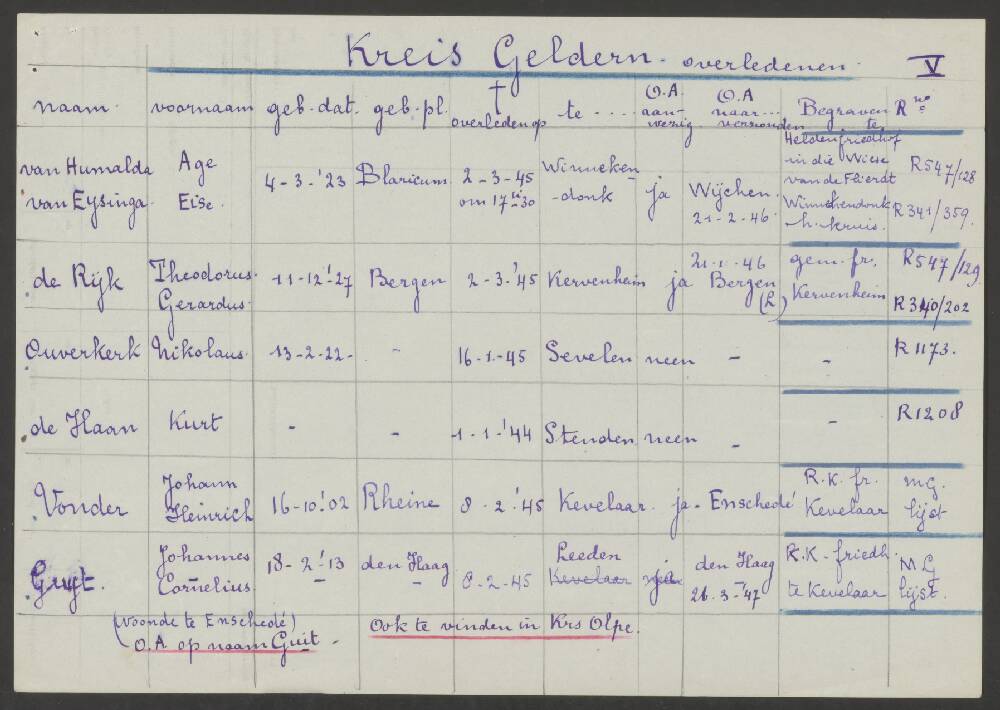 Kreis Geldern - overledenen - V
naam - voornaam geb-dat. geb-pl. † overleden op te .... O.A. aan-wezig. O.A naar... verzonden Begraven te R no
van Humalda van Eysinga Age Eise 4-3-'23 Blaricum 2-3-45 om 17 u 30 Winneken-donk ja Wijchen. 21-2-46. Heldenfriedhof in die Wiese van de Flierdt Winnekendonk h. kruis. R547/128 R341/359.
de Rijk Theodorus Gerardus 11-12-'27 Bergen 2-3-'45 Kervenheim ja 21-1-46 Bergen (L) gem. fr. Kervenheim R547/129 R340/202
Ouverkerk Nikolaus 13-2-22- - 16-1-45 Sevelen neen - - R1173.
de Haan Kurt - - 1-1-'44 Stenden neen - - R1208
Vonder Johann Heinrich 16-10-'02 Rheine 8-2-'45 Kevelaar ja - Enschedé R.K. fr. Kevelaar m.G. lijst
Guyt. Johannes Cornelius 18-2-'13 den Haag 8-2-45 Leeden Kevelaar den Haag 26-3-'47 R.K-friedh. te Kevelaar M.G lijst.
(Woonde te Enschedé)
O.A op naam Guit - Ook te vinden in Krs Olpe.